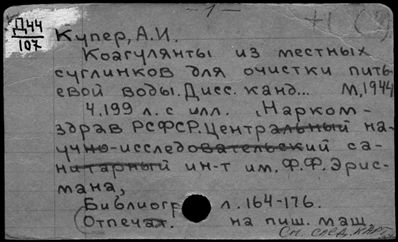 — 1 —
Д44
107
Купер, А.И.
Коагулянты из местных
суглинков для очистки пить-
евой воды. Дисс. канд... М, 1944
4,199 л. с илл. (Нарком-
здрав РСФСР. Центральный на-
учно-исследовательский са-
нитарный ин-т им. Ф.Ф. Эрис-
мана,
Библиогр л. 164-176.
Отпечат. на пиш. маш.
См. след. карт.